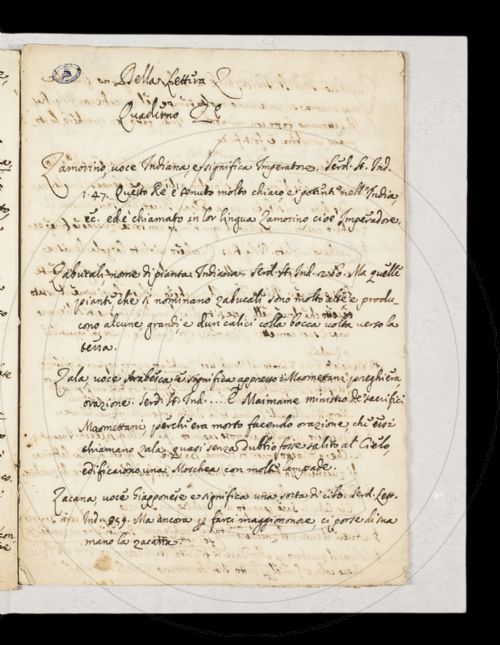 Della Lettura Z
Quaderno P.º
Zamorino, voce Indiana e significa Imperatore. Serd. St. Ind.
1.47. Questo Re è tenuto molto chiaro, e potente nell'India
ec. ed è chiamato in lor lingua Zamorino cioè Imperadore.
Zabucali, nome di pianta Indiana. Serd. St. Ind. Ma quelle
piante che si nominano zabucali sono molto alte e produ
cono alcune grandi, e duri calici colla bocca volta verso la
terra.
Zala voce Arabesca e significa appresso i Maomettani preghiera
orazione. Serd. St. Ind. .... E Maimame ministro de' sacrifici
Maomettani perchè era morto facendo orazione, che essi
chiamano Zala, quasi senza dubbio fosse salito al Cielo,
edificarono una Moschea con molte lampade.
Zacana voce Giapponese e significa una sorta di cibo. Serd. Lett.
Ind. 859. Ma ancora p farci maggiore onore ci porse di sua
mano la zacana.